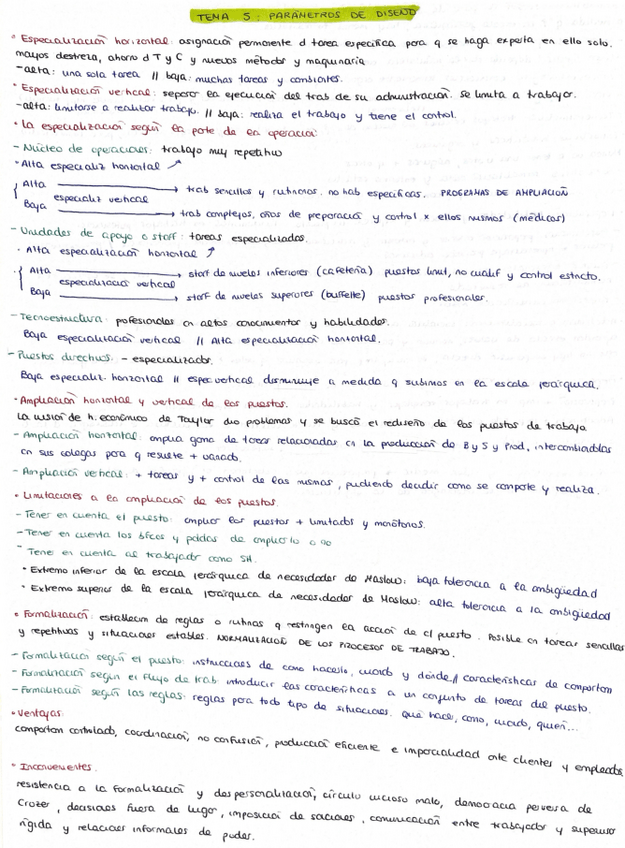 TEMA 5: PARÁMETROS DE DISEÑO
• Especialización horizontal: asignación permanente d tarea específica para q se haga experta en ello solo.
mayos destreza, ahorro d T y C y nuevos métodos y maquinaria
-alta: una sola tarea // baja: muchas tareas y cambiantes.
• Especialización vertical: separar la ejecución del trab de su administración. se limita a trabajar.
-alta: limitarse a realizar trabajo. // baja: realiza el trabajo y tiene el control.
• La especialización según la parte de la operación:
- Núcleo de operaciones: trabajo muy repetitivo
• Alta especializ horizontal ↗
{ Alta → trab sencillos y rutinarios. no hab específicas. PROGRAMAS DE AMPLIACIÓN
especializ vertical
Baja → trab complejos, años de preparación y control x ellos mismos (médicos)
- Unidades de apoyo o staff: tareas especializadas.
· Alta especialización horizontal ↗
· { Alta → staff de niveles inferiores (cafetería) puestos limit, no cualif y control estricto.
especialización vertical
Baja → staff de niveles superiores (buffette) puestos profesionales.
- Tecnoestructura: profesionales cn altos conocimientos y habilidades.
Baja especialización vertical // Alta especialización horizontal.
- Puestos directivos: - especializados.
Baja especializ. horizontal // espec vertical disminuye a medida q subimos en la escala jerárquica.
• Ampliación horizontal y vertical de los puestos.
La visión de h. económico de Taylor dio problemas y se buscó el rediseño de los puestos de trabajo
- Ampliación horizontal: amplia gama de tareas relacionadas cn la producción de B y S y Prod, intercambiándolas
cn sus colegas para q resulte + variado.
- Ampliación vertical: + tareas y + control de las mismas, pudiendo decidir como se comparte y realiza.
• Limitaciones a la ampliación de los puestos.
- Tener en cuenta el puesto: ampliar los puestos + limitados y monótonos.
- Tener en cuenta los bfcos y pddas de ampliarlo o no
- Tener en cuenta al trabajador como SH.
• Extremo inferior de la escala jerárquica de necesidades de Maslow: baja tolerancia a la ambigüedad
• Extremo superior de la escala jerárquica de necesidades de Maslow: alta tolerancia a la ambigüedad
• Formalización: establecim de reglas o rutinas q restringen la acción de c/ puesto. Posible en tareas sencillas
y repetitivas y situaciones estables. NORMALIZACIÓN DE LOS PROCESOS DE TRABAJO.
- Formalización según el puesto: instrucciones de como hacerlo, cuando y dónde // características de comportam
- Formalización según el flujo de trab: introducir las características a un conjunto de tareas del puesto.
- Formalización según las reglas: reglas para todo tipo de situaciones. que hacer, como, cuando, quien...
• Ventajas:
comportam controlado, coordinación, no confusión, producción eficiente e imparcialidad ante clientes y empleados
• Inconvenientes.
resistencia a la formalización y despersonalización, círculo vicioso malo, democracia perversa de
Crozer, decisiones fuera de lugar, imposición de sanciones, comunicación entre trabajador y supervisor
rígida y relaciones informales de poder.